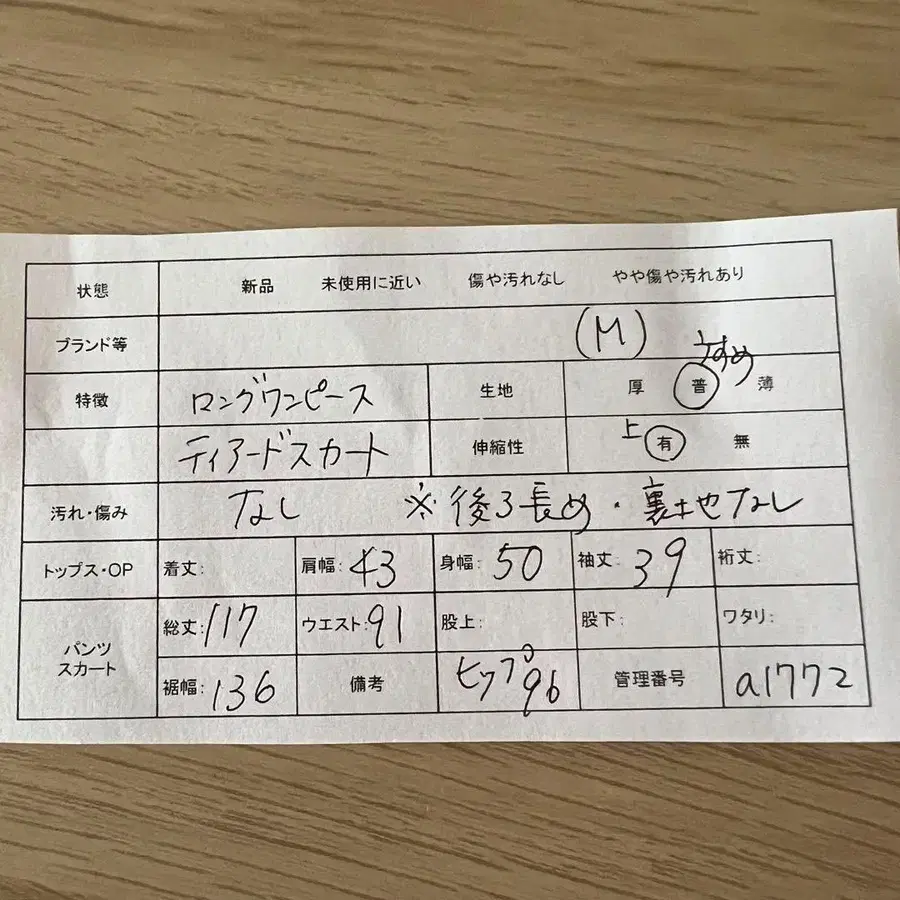 状態 新品 未使用に近い 傷や汚れなし やや傷や汚れあり
ブランド等 (M)
うすめ
特徴 ロングワンピース 生地 厚 普 薄
ティアードスカート 伸縮性 上 有 無
汚れ・傷み なし ※後ろ長め・裏地なし
トップス・OP 着丈: 肩幅:43 身幅:50 袖丈:39 裄丈:
パンツ スカート 総丈:117 ウエスト:91 股上: 股下: ワタリ:
裾幅:136 備考 ヒップ96 管理番号 a1772